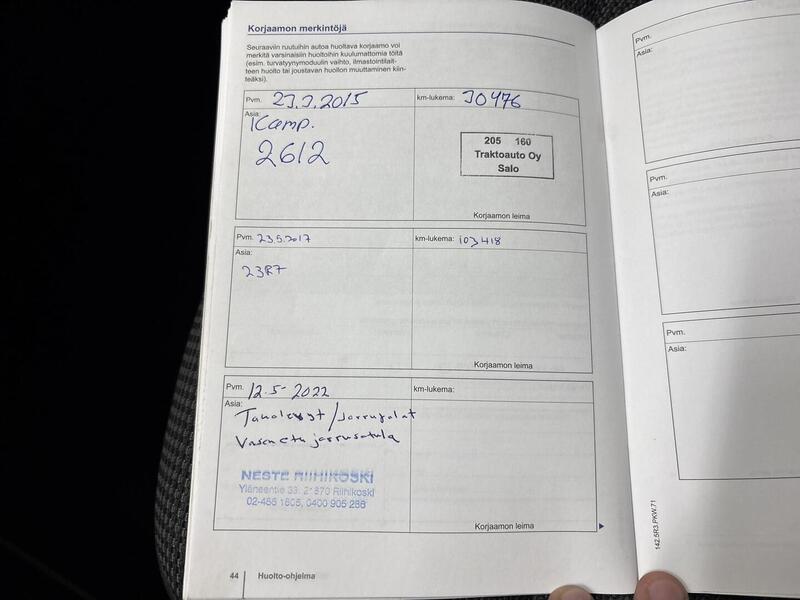 Korjaamon merkintöjä
Seuraaviin ruutuihin autoa huoltava korjaamo voi
merkitä varsinaisiin huoltoihin kuulumattomia töitä
(esim. turvatyynymoduulin vaihto, ilmastointilait-
teen huolto tai joustavan huollon muuttaminen kiin-
teäksi).
Pvm. 23.3.2015 km-lukema: 30476
Asia:
Kamp.
2612
205 160
Traktoauto Oy
Salo
Korjaamon leima
Pvm. 23.5.2017 km-lukema: 103418
Asia:
23R7
Korjaamon leima
Pvm. 12.5-2022 km-lukema:
Asia:
Takalevyt/Jarrupalat
Vasen etu jarrusatula
NESTE RIIHIKOSKI
Yläneentie 33, 21870 Riihikoski
02-486 1605, 0400 905 286
Korjaamon leima
44 Huolto-ohjelma
Pvm.
Asia:
Pvm.
Asia:
Pvm.
Asia:
142.5R3.PKW.71